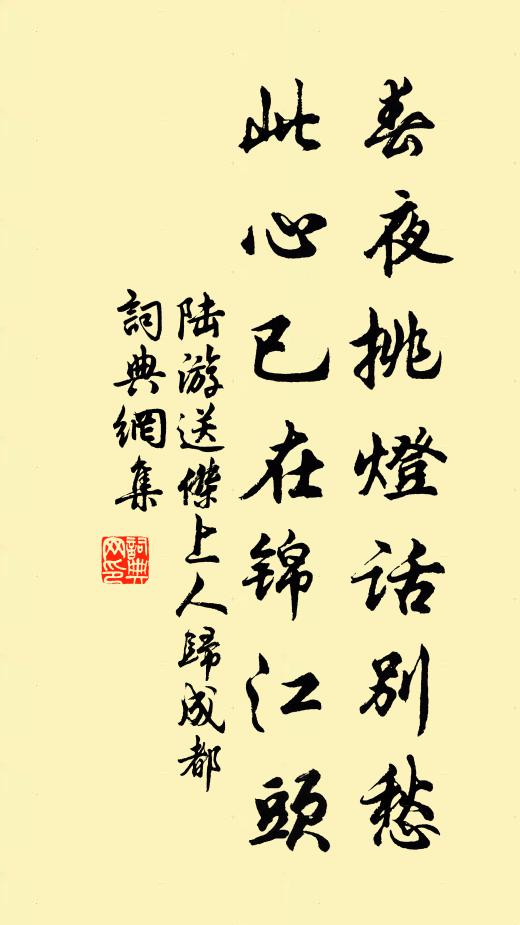 春夜挑燈话别愁
此心已在锦江頭
陆游送傑上人歸成都
詞典網集
詞典网印